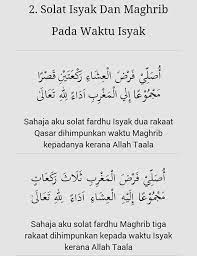 2. Solat Isyak Dan Maghrib
Pada Waktu Isyak
أُصَلِّيْ فَرْضَ الْعِشَاءِ رَكْعَتَيْنِ قَصْرًا
مَجْمُوْعًا إِلَيْهِ الْمَغْرِبُ أَدَاءً لِلّٰهِ تَعَالَى
Sahaja aku solat fardhu Isyak dua rakaat
Qasar dihimpunkan waktu Maghrib
kepadanya kerana Allah Taala
أُصَلِّيْ فَرْضَ الْمَغْرِبِ ثَلَاثَ رَكَعَاتٍ
مَجْمُوْعًا إِلَى الْعِشَاءِ أَدَاءً لِلّٰهِ تَعَالَى
Sahaja aku solat fardhu Maghrib tiga
rakaat dihimpunkan kepada waktu Isyak
kerana Allah Taala